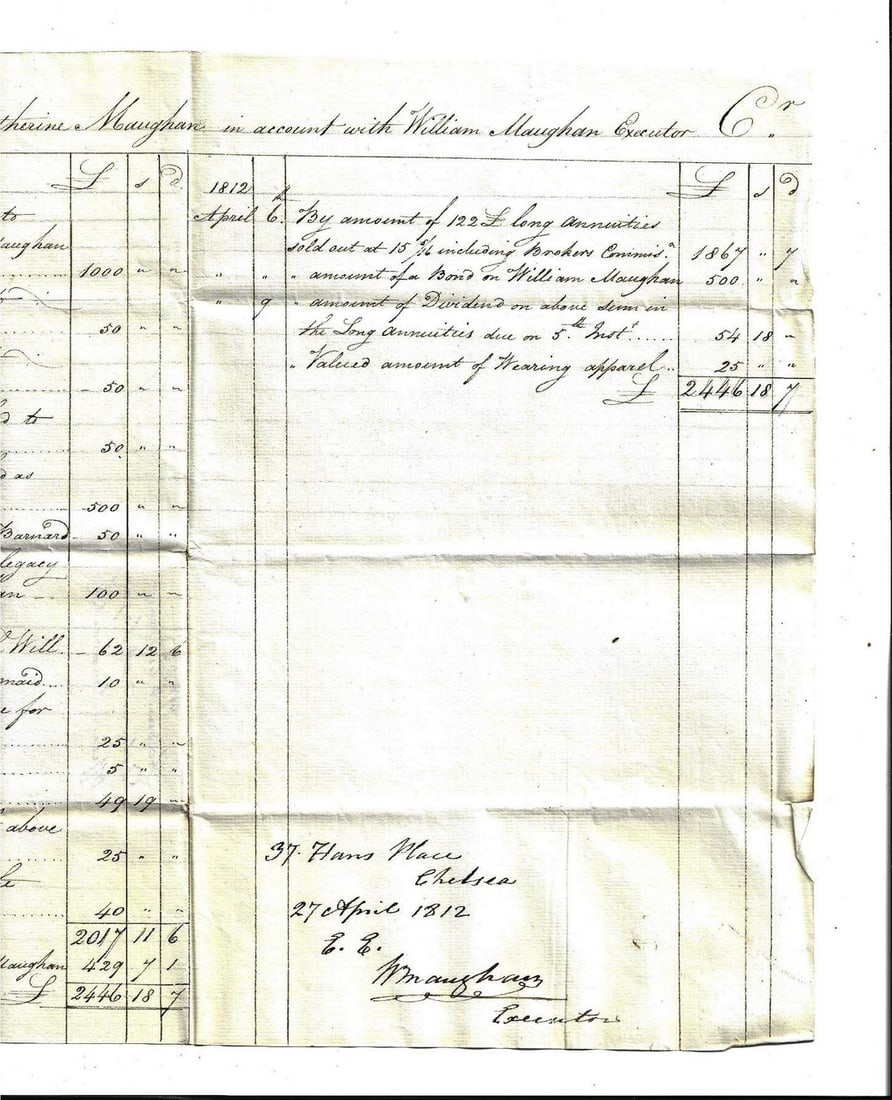 therine Maughan in account with William Maughan Executor Cr
£ s d
to
aughan
1000 " "
50 " "
50 " "
d to
50 " "
d as
500 " "
Barnard 50 " "
legacy
an 100 " "
Will. 62 12 6
maid 10 " "
e for
25 " "
5 " "
49 19 "
above
25 " "
40 " "
2017 11 6
Maughan 429 7 1
£ 2446 18 7
1812 £ s d
April 6th By amount of 122 £ long annuities
sold out at 15 5/16 including Brokers Commisn 1867 " 7
" " " amount of a Bond on William Maughan 500 " "
" 9 " amount of Dividend on above sum in
the Long Annuities due on 5th Inst 54 18 "
" Valued amount of Wearing apparel 25 " "
£ 2446 18 7
37. Hans Place
Chelsea
27 April 1812
E. E.
WMaughan
Executor